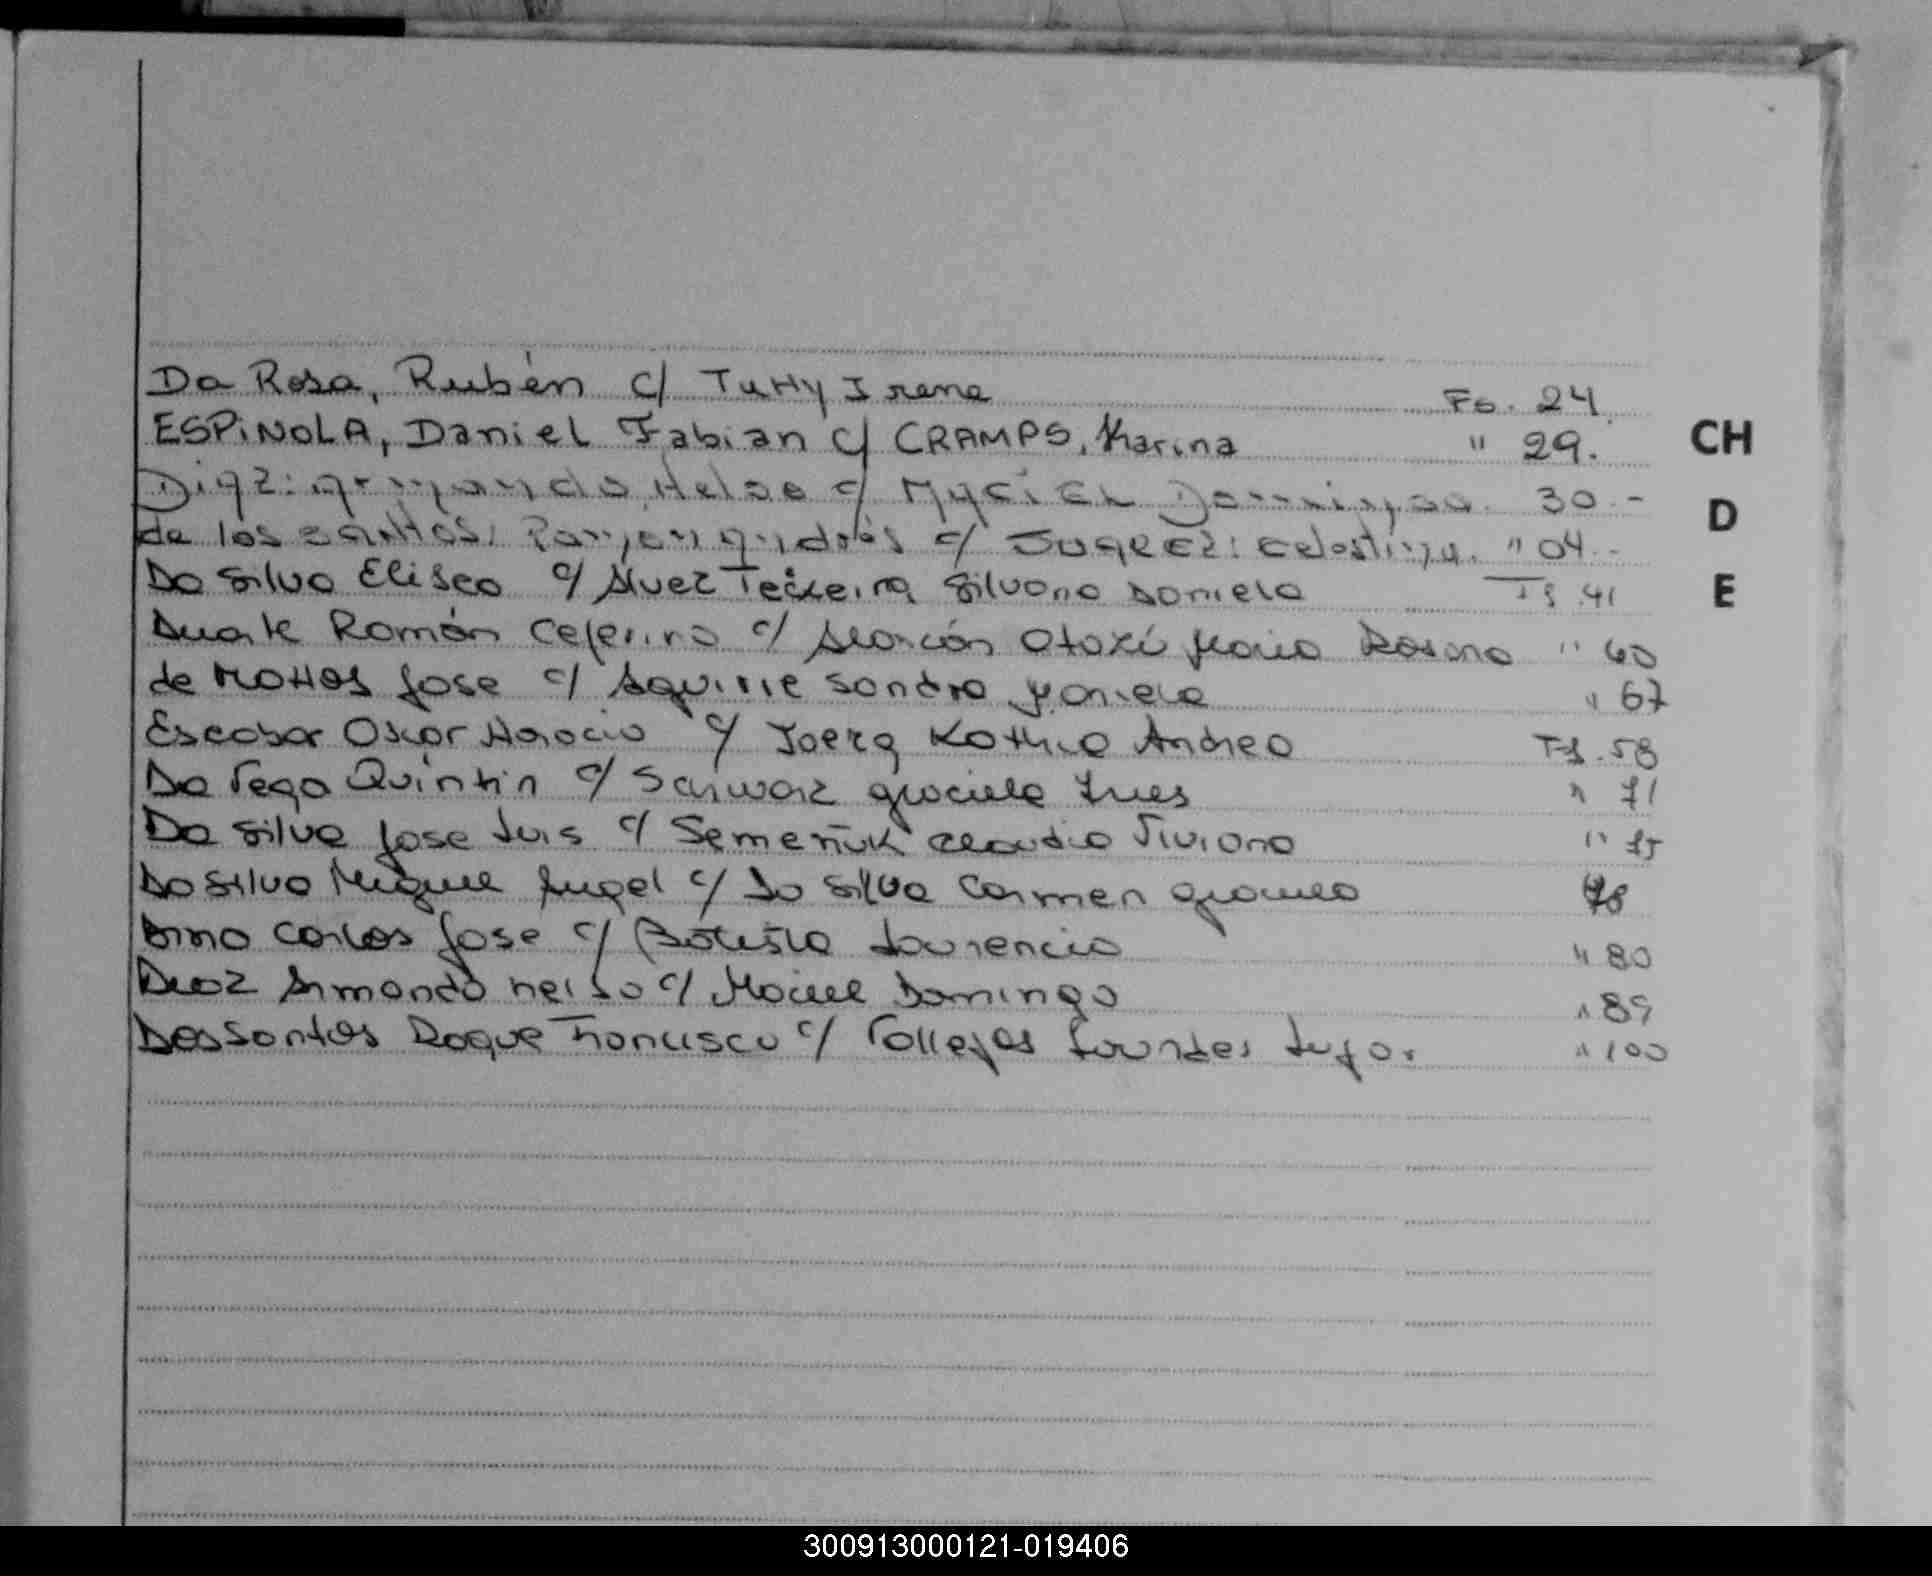 Da Rosa, Rubén c/ Tutty Irene Fs. 24
ESPiNOLA, Daniel Fabian c/ CRAMPS, Karina " 29.
CH
Diaz: Armando, Nelso c/ Domingo. 30.-
D
de los santos: Ramon Andrés c/ Suarez: Celestina. " 04.-
Da Silva Eliseo c/ Alvez Teixeira Silvana Daniela Fs. 41
E
Duarte Román Ceferino c/ Alarcón María Rosana " 60
de Mattos Jose c/ Aguirre Sandra " 67
Escobar Oscar Horacio c/ Joerg Kathia Andrea Fs. 58
Da Vega Quintin c/ Schwarz Graciela Ines " 71
Da Silva Jose Luis c/ Semeñuk Claudia Viviana " 75
Da Silva Miguel Angel c/ Da Silva Carmen Graciela 78
Carlos Jose c/ Batista Laurencia " 80
Diaz Armando nelso c/ Maciel Dominga " 89
Dos Santos Roque Francisco c/ Vallejos Lourdes " 100
300913000121-019406